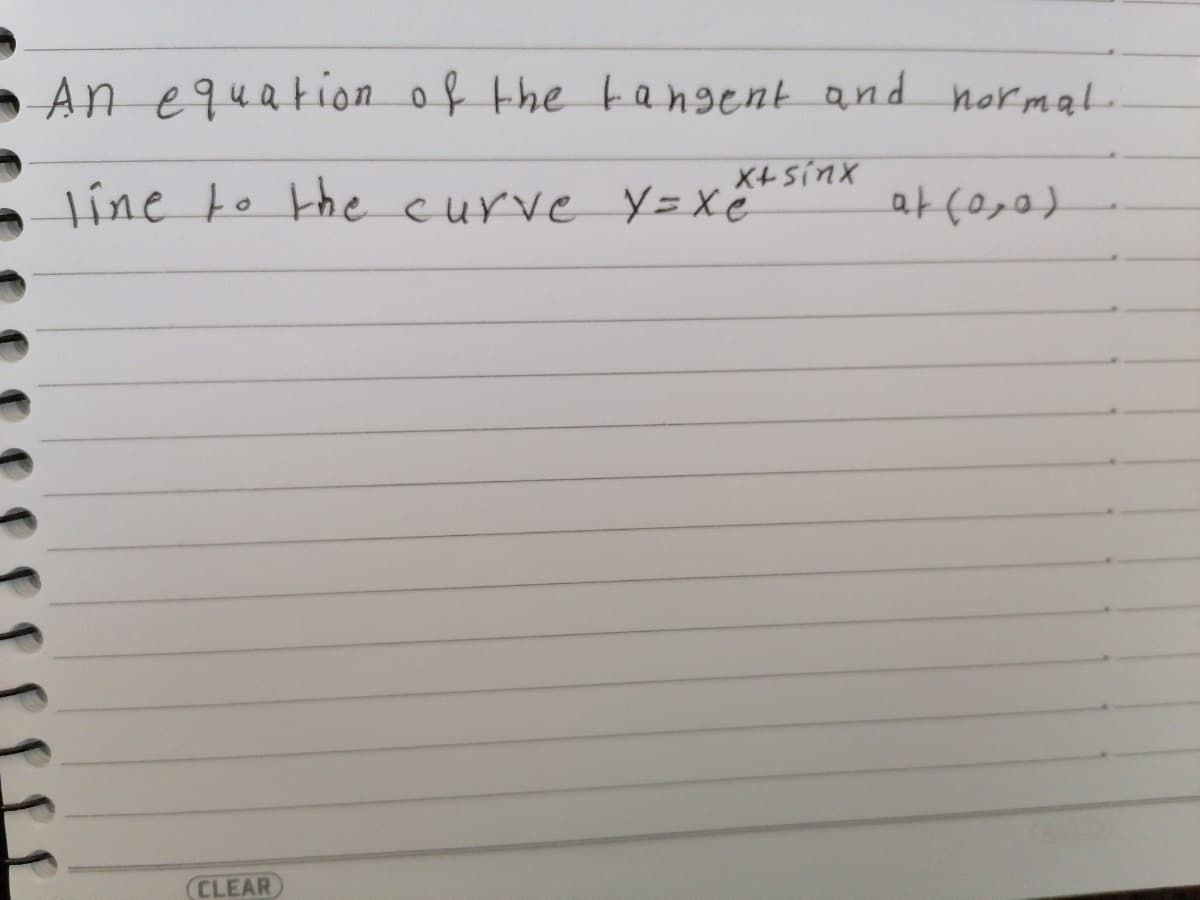 An equation of the tangent and normal.
line to the curve y=xe^{x+sinx} at (0,0)
CLEAR